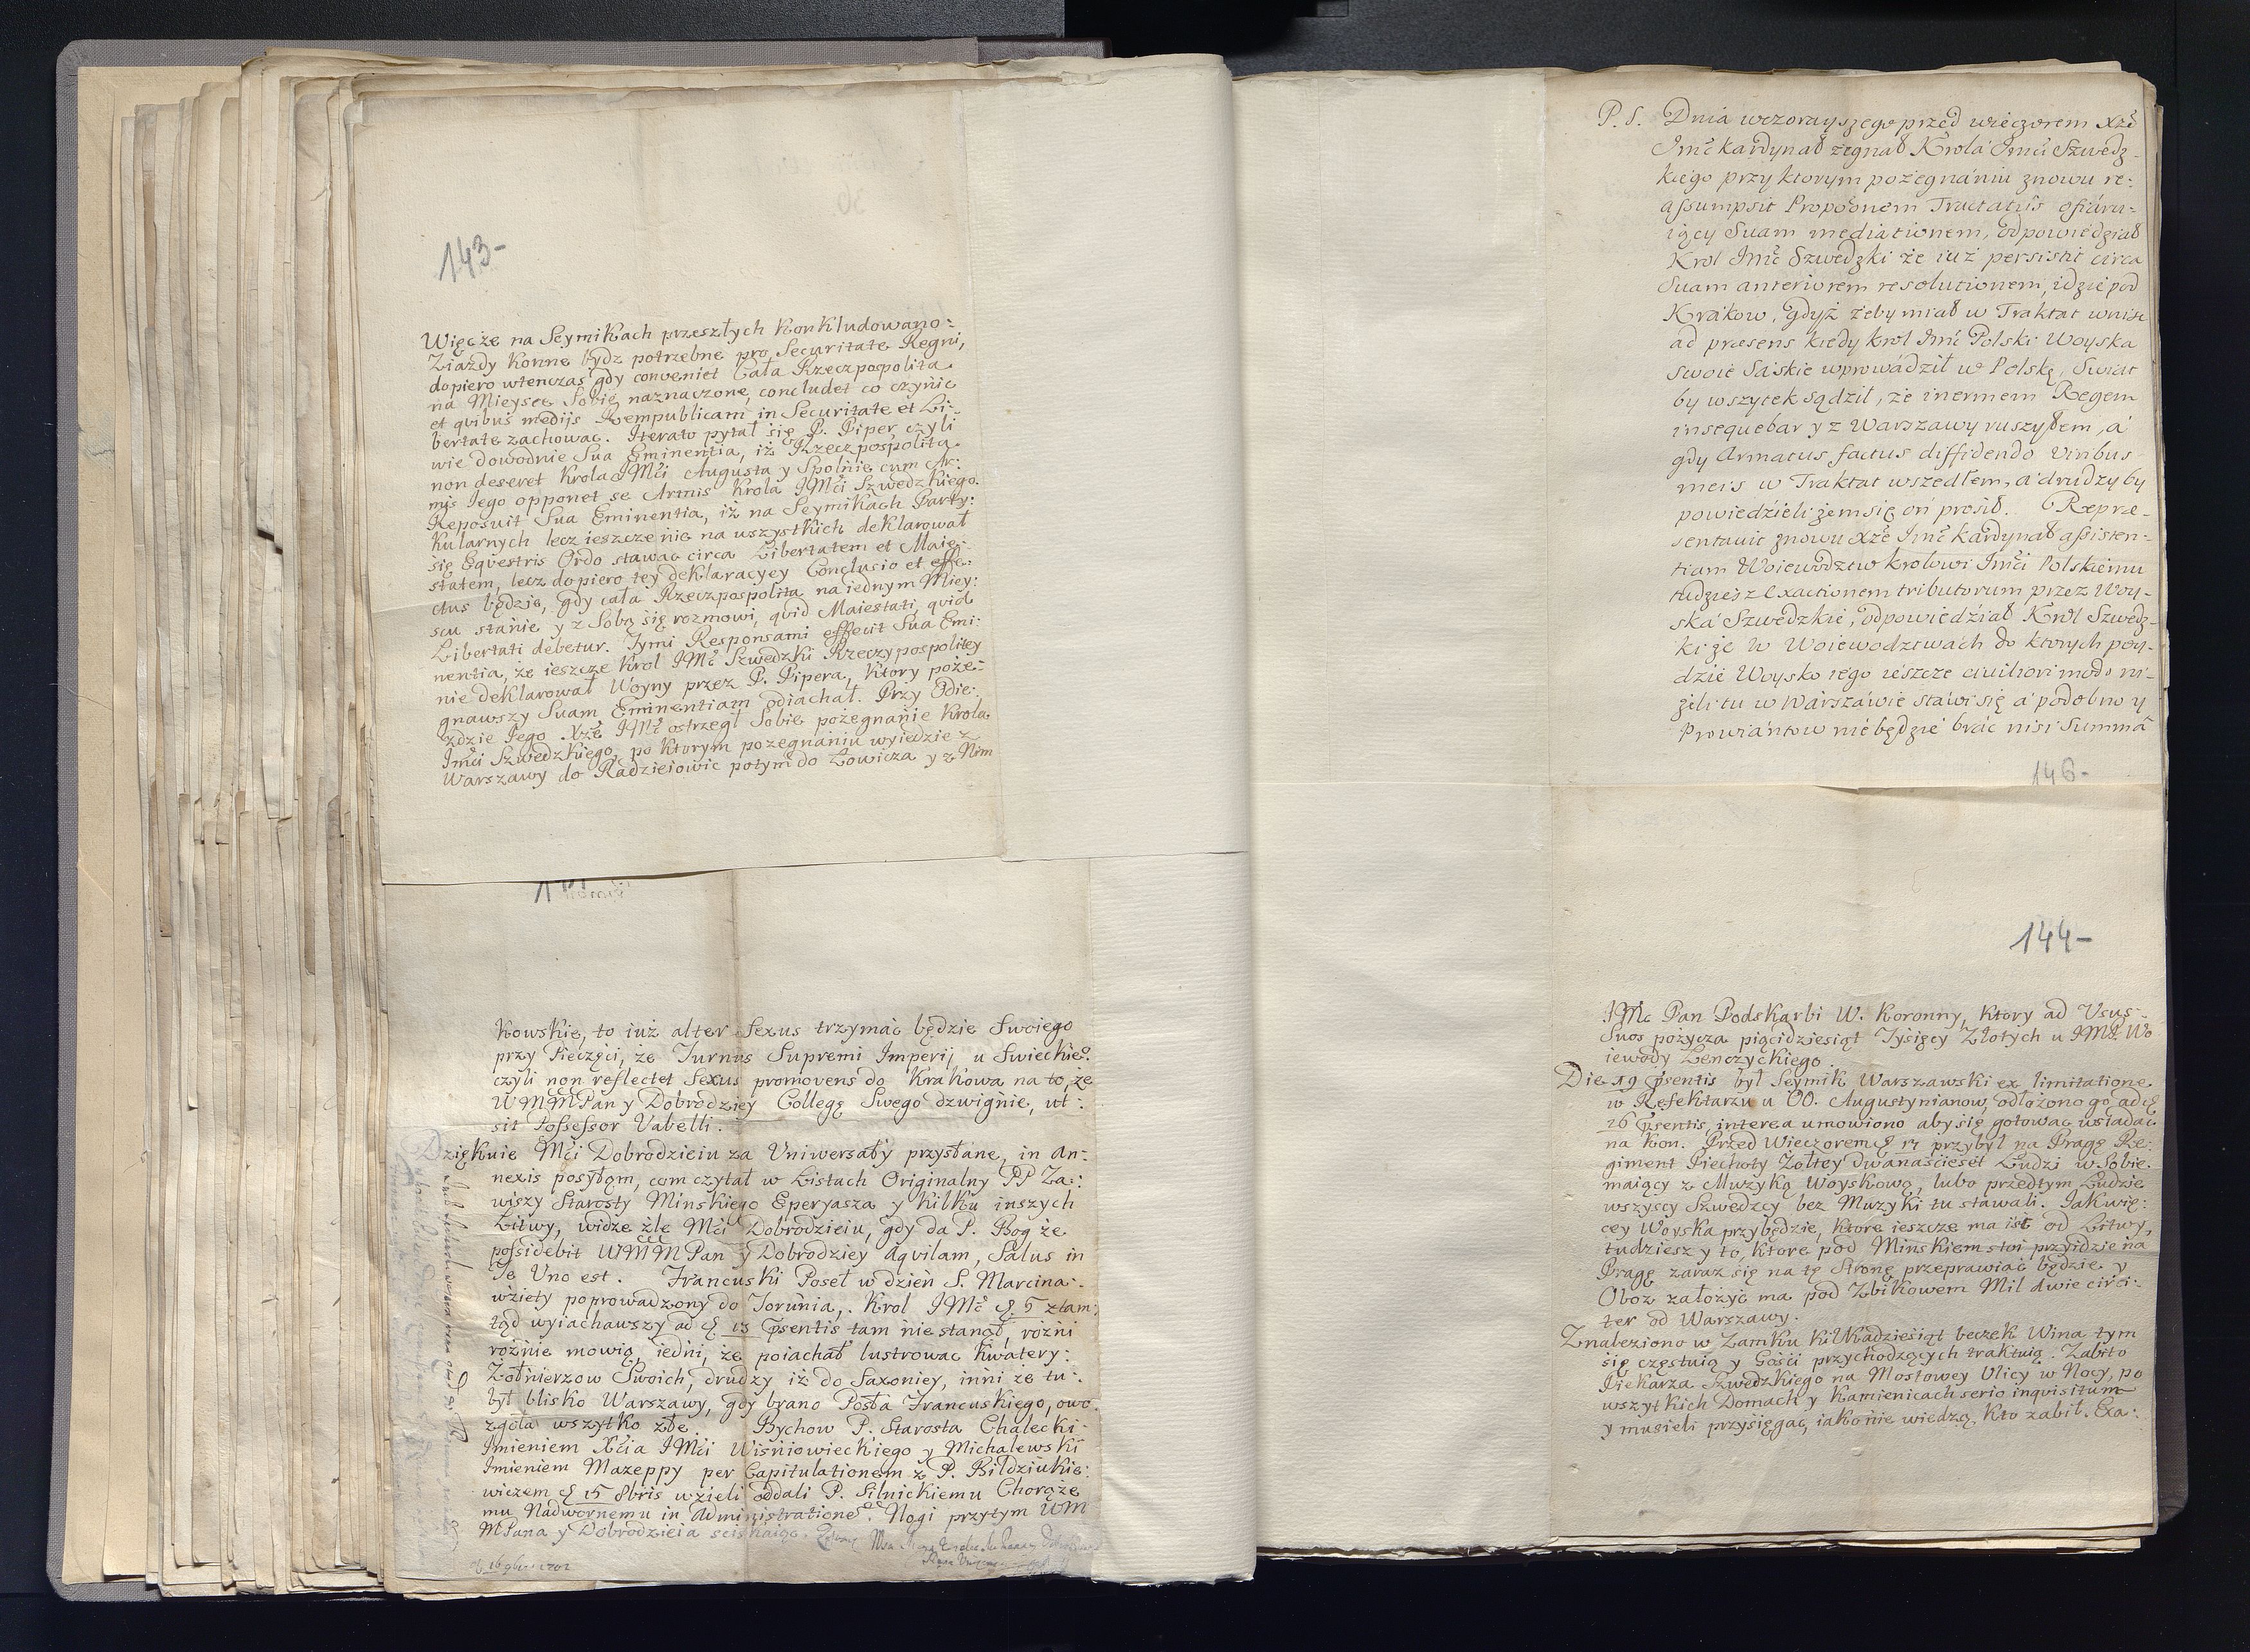 143-
Więc że na Seymikach przeszłych konkludowano:
Ziazdy konne bydz potrzebne pro Securitate Regni,
dopiero wtenczas gdy conveniet Cała Rzeczpospolita
na Mieysce Sobie naznaczone, concludet co czynic
et quibus medijs Rempublicam in Securitate et Li:
bertate zachowac. Iterato pytał się P. Piper czyli
wie dowodnie Sua Eminentia, iż Rzeczpospolita
non deseret Krola JMći Augusta y Spolnie cum Ar:
mis Iego opponet se Armis Krola JMći Szwedzkiego.
Reposuit Sua Eminentia, iż na Seymikach Party:
kularnych lecz ieszcze nie na uszystkich deklarował
się Equestris Ordo stawac circa Libertatem et Maie:
statem, lecz dopiero tey deklaracyey Conclusio et effe:
ctus będzie, gdy cała Rzeczpospolita na iednym Miey:
scu stanie y z Sobą się rozmowi, quid Maiestati, quid
Libertati debetur. Tymi Responsami effecit Sua Emi:
nentia, że ieszcze Krol JMć Szwedzki Rzeczypospolitey
nie deklarował Woyny przez P. Pipera, ktory poże:
gnawszy Suam Eminentiam odiachał. Przy Odie:
zdzie Iego Xże JMć ostrzegł Sobie pożegnanie Krola
Jmći Szwedzkiego, po ktorym pozegnaniu wyiedzie z
Warszawy do Radzieiowic potym do Łowicza y z Nim
kowskie, to iuż alter Sexus trzymac będzie Swoiego
przy Pieczęci, że Turnus Supremi Imperij u Swieckieo
czyli non reflectet Sexus promovens do Krakowa na to, że
WMMPan y Dobrodziey Collegę Swego dzwignie, ut:
sit Possessor Vabelli.
Dziękuie Mći Dobrodzieiu za Uniwersały przysłane, in An:
nexis posyłam, com czytał w Listach Originalny PP Za:
wiszy Starosty Minskiego Eperyasza y kilku inszych
Litwy, widze źle Mći Dobrodzieiu, gdy da P. Bog że
possidebit WMMPan y Dobrodziey Aquilam, Salus in
Te Uno est. Francuski Poseł w dzień S. Marcina
wzięty poprowadzony do Torunia. Krol JMć d. 5 ztam:
tąd wyiachawszy ad d. 13 psentis tam nie stanął, rożni
rożnie mowią, iedni, że poiachał lustrowac kwatery:
Zołnierzow Swoich, drudzy iż do Saxoniey, inni że tu:
był blisko Warszawy, gdy brano Posła Francuskiego, owo
zgoła wszytko złe. Bychow P. Starosta Chalecki
Imieniem Xćia JMći Wiśniowieckiego y Michalewski
Imieniem Mazeppy per Capitulationem z P. Bildziukie:
wiczem d. 15 8bris wzieli oddali P. Silnickiemu Chorąże
mu Nadwornemu in Administratione. Nogi przytym WM
MPana y Dobrodzieia sciskaiąc.
P. S. Dnia wczorayszego przed wieczorem Xże
Jmć kardynał żegnał Krola Jmći Szwedz-
kiego przy ktorym pożegnaniu znowu re:
assumpsit Proponem Tractatûs ofiaru-
iący Suam mediationem, odpowiedział
Krol Jmć Szwedzki że iuż persistit circa
Suam anteriorem resolutionem, idzie pod
Krakow, gdyż żeby miał w Traktat wniść
ad praesens kiedy krol Jmć Polski Woyska
swoie Saskie wprowadził w Polskę, Swiat
by wszytek sądził, że inermem Regem
insequebar y z Warszawy ruszyłem, a
gdy Armatus factus diffidendo viribus
meis w Traktat wszedłem, a drudzy by
powiedzieli żem się oń prosił. Reprae-
sentavit znowu Xże Jmć kardynał assisten-
tiam Woiewodztw krolowi Jmći Polskiemu
tudziesz exactionem tributorum przez Woy-
ska Szwedzkie, odpowiedział Krol Szwedz-
ki że w Woiewodztwach do ktorych poy-
dzie Woysko iego ieszcze civiliori modo ni-
żeli tu w Warszawie stawi się a podobno y
Prowiantow nie będzie brać nisi Summâ
146-
144-
JMć Pan Podskarbi W. Koronny, ktory ad Usus
Suos pożycza pięcidziesiąt Tysięcy Złotych u JMP. Wo
iewody Lenczyckiego.
Die 19 psentis był Seymik Warszawski ex limitatione
w Refektarzu u OO. Augustynianow, odłożono go ad d.
26 psentis, interea umowiono aby się gotowac wsiadac
na kon. Przed Wieczorem d. 17 przybył na Pragę Re:
giment Piechoty Zołtey dwanaścieset Ludzi w Sobie
maiący z Muzyką Woyskową, lubo przedtym Ludzie
wszyscy Szwedzcy bez Muzyki tu stawali. Jak wię:
cey Woyska przybędzie, ktore ieszcze ma ist od Litwy,
tudziesz y to, ktore pod Minskiem stoi przyidzie na
Pragę zaraz się na tę Stronę przeprawiac będzie y
Oboz założyc ma pod Zbikowem Mil dwie circi:
ter od Warszawy.
Znaleziono w Zamku kilkadziesiąt beczek Wina tym
się częstuią y Gośći przychodzących traktuią. Zabito
Piekarza Szwedzkiego na Mostowey Ulicy w Nocy, po
wszytkich Domach y Kamienicach serio inquisitum
y musieli przysięgac, iako nie wiedzą, kto zabił. Exa: